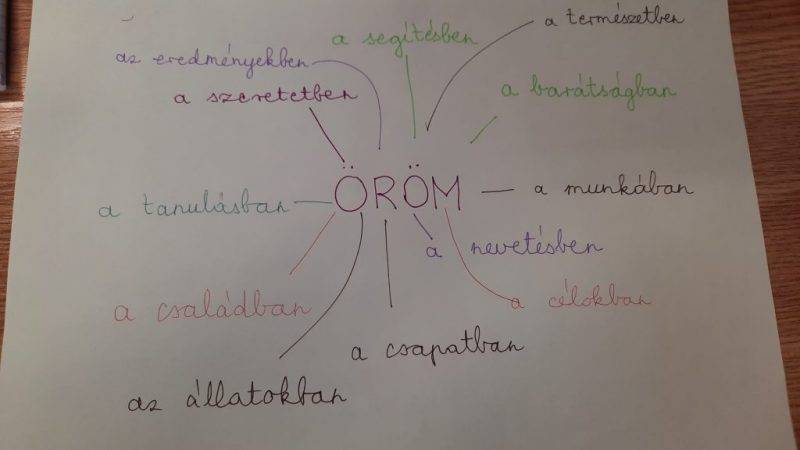 a természetben
a segítésben
az eredményekben
a szeretetben
a barátságban
ÖRÖM
a munkában
a tanulásban
a nevetésben
a családban
a célokban
a csapatban
az állatokban